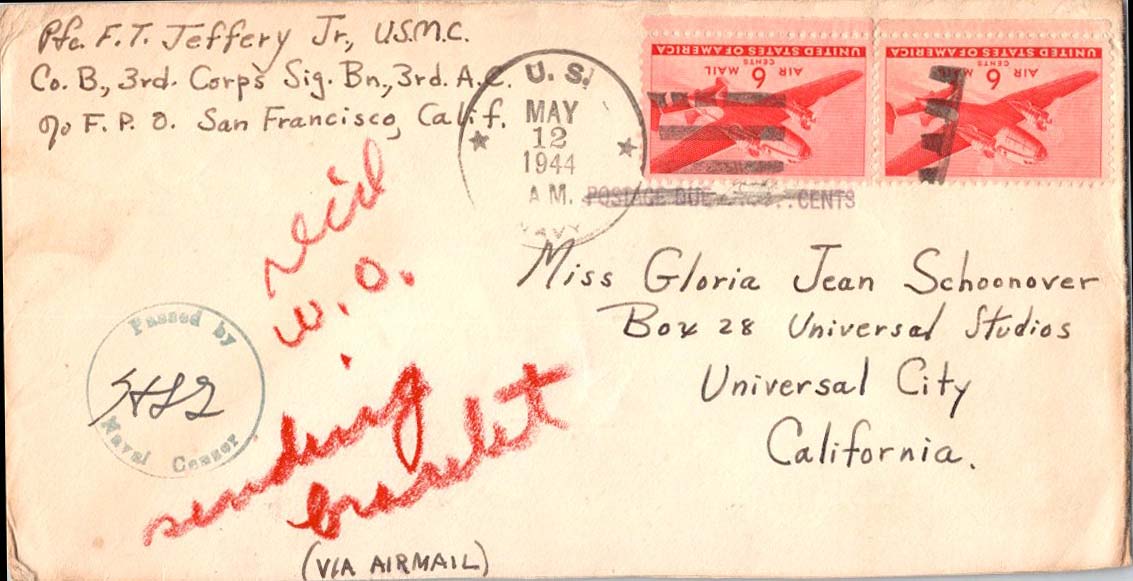 Pfc. F.T. Jeffery Jr., U.S.M.C.
Co. B., 3rd. Corps Sig. Bn., 3rd. A.C.
c/o F. P. O. San Francisco, Calif.
U. S.
MAY
12
1944
A M.
NAVY
UNITED STATES OF AMERICA
AIR 6 MAIL
CENTS
UNITED STATES OF AMERICA
AIR 6 MAIL
CENTS
POSTAGE DUE CENTS
Miss Gloria Jean Schoonover
Box 28 Universal Studios
Universal City
California.
Passed by
Naval Censor
rec'd
w. o.
sending
bracelet
(VIA AIRMAIL)